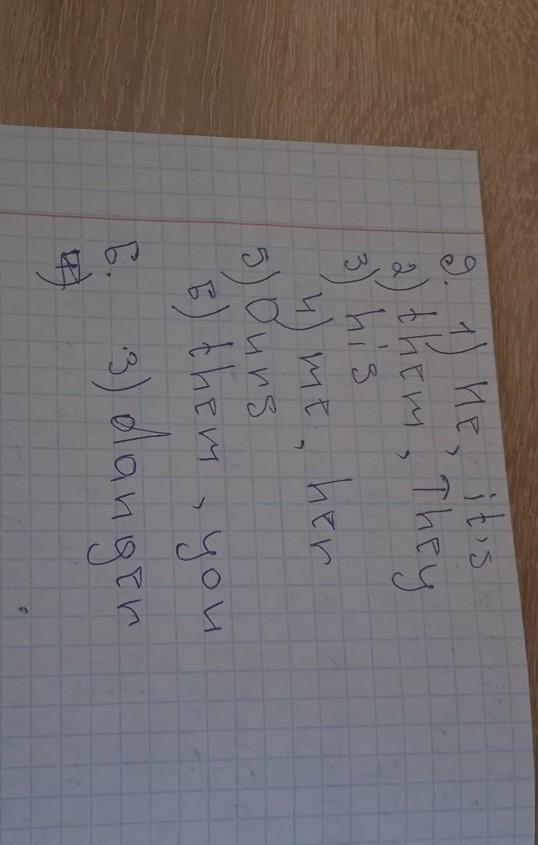 9. 1) he, it's
2) them, They
3) his
4) me, her
5) Ours
6) them, you
6. 3) danger